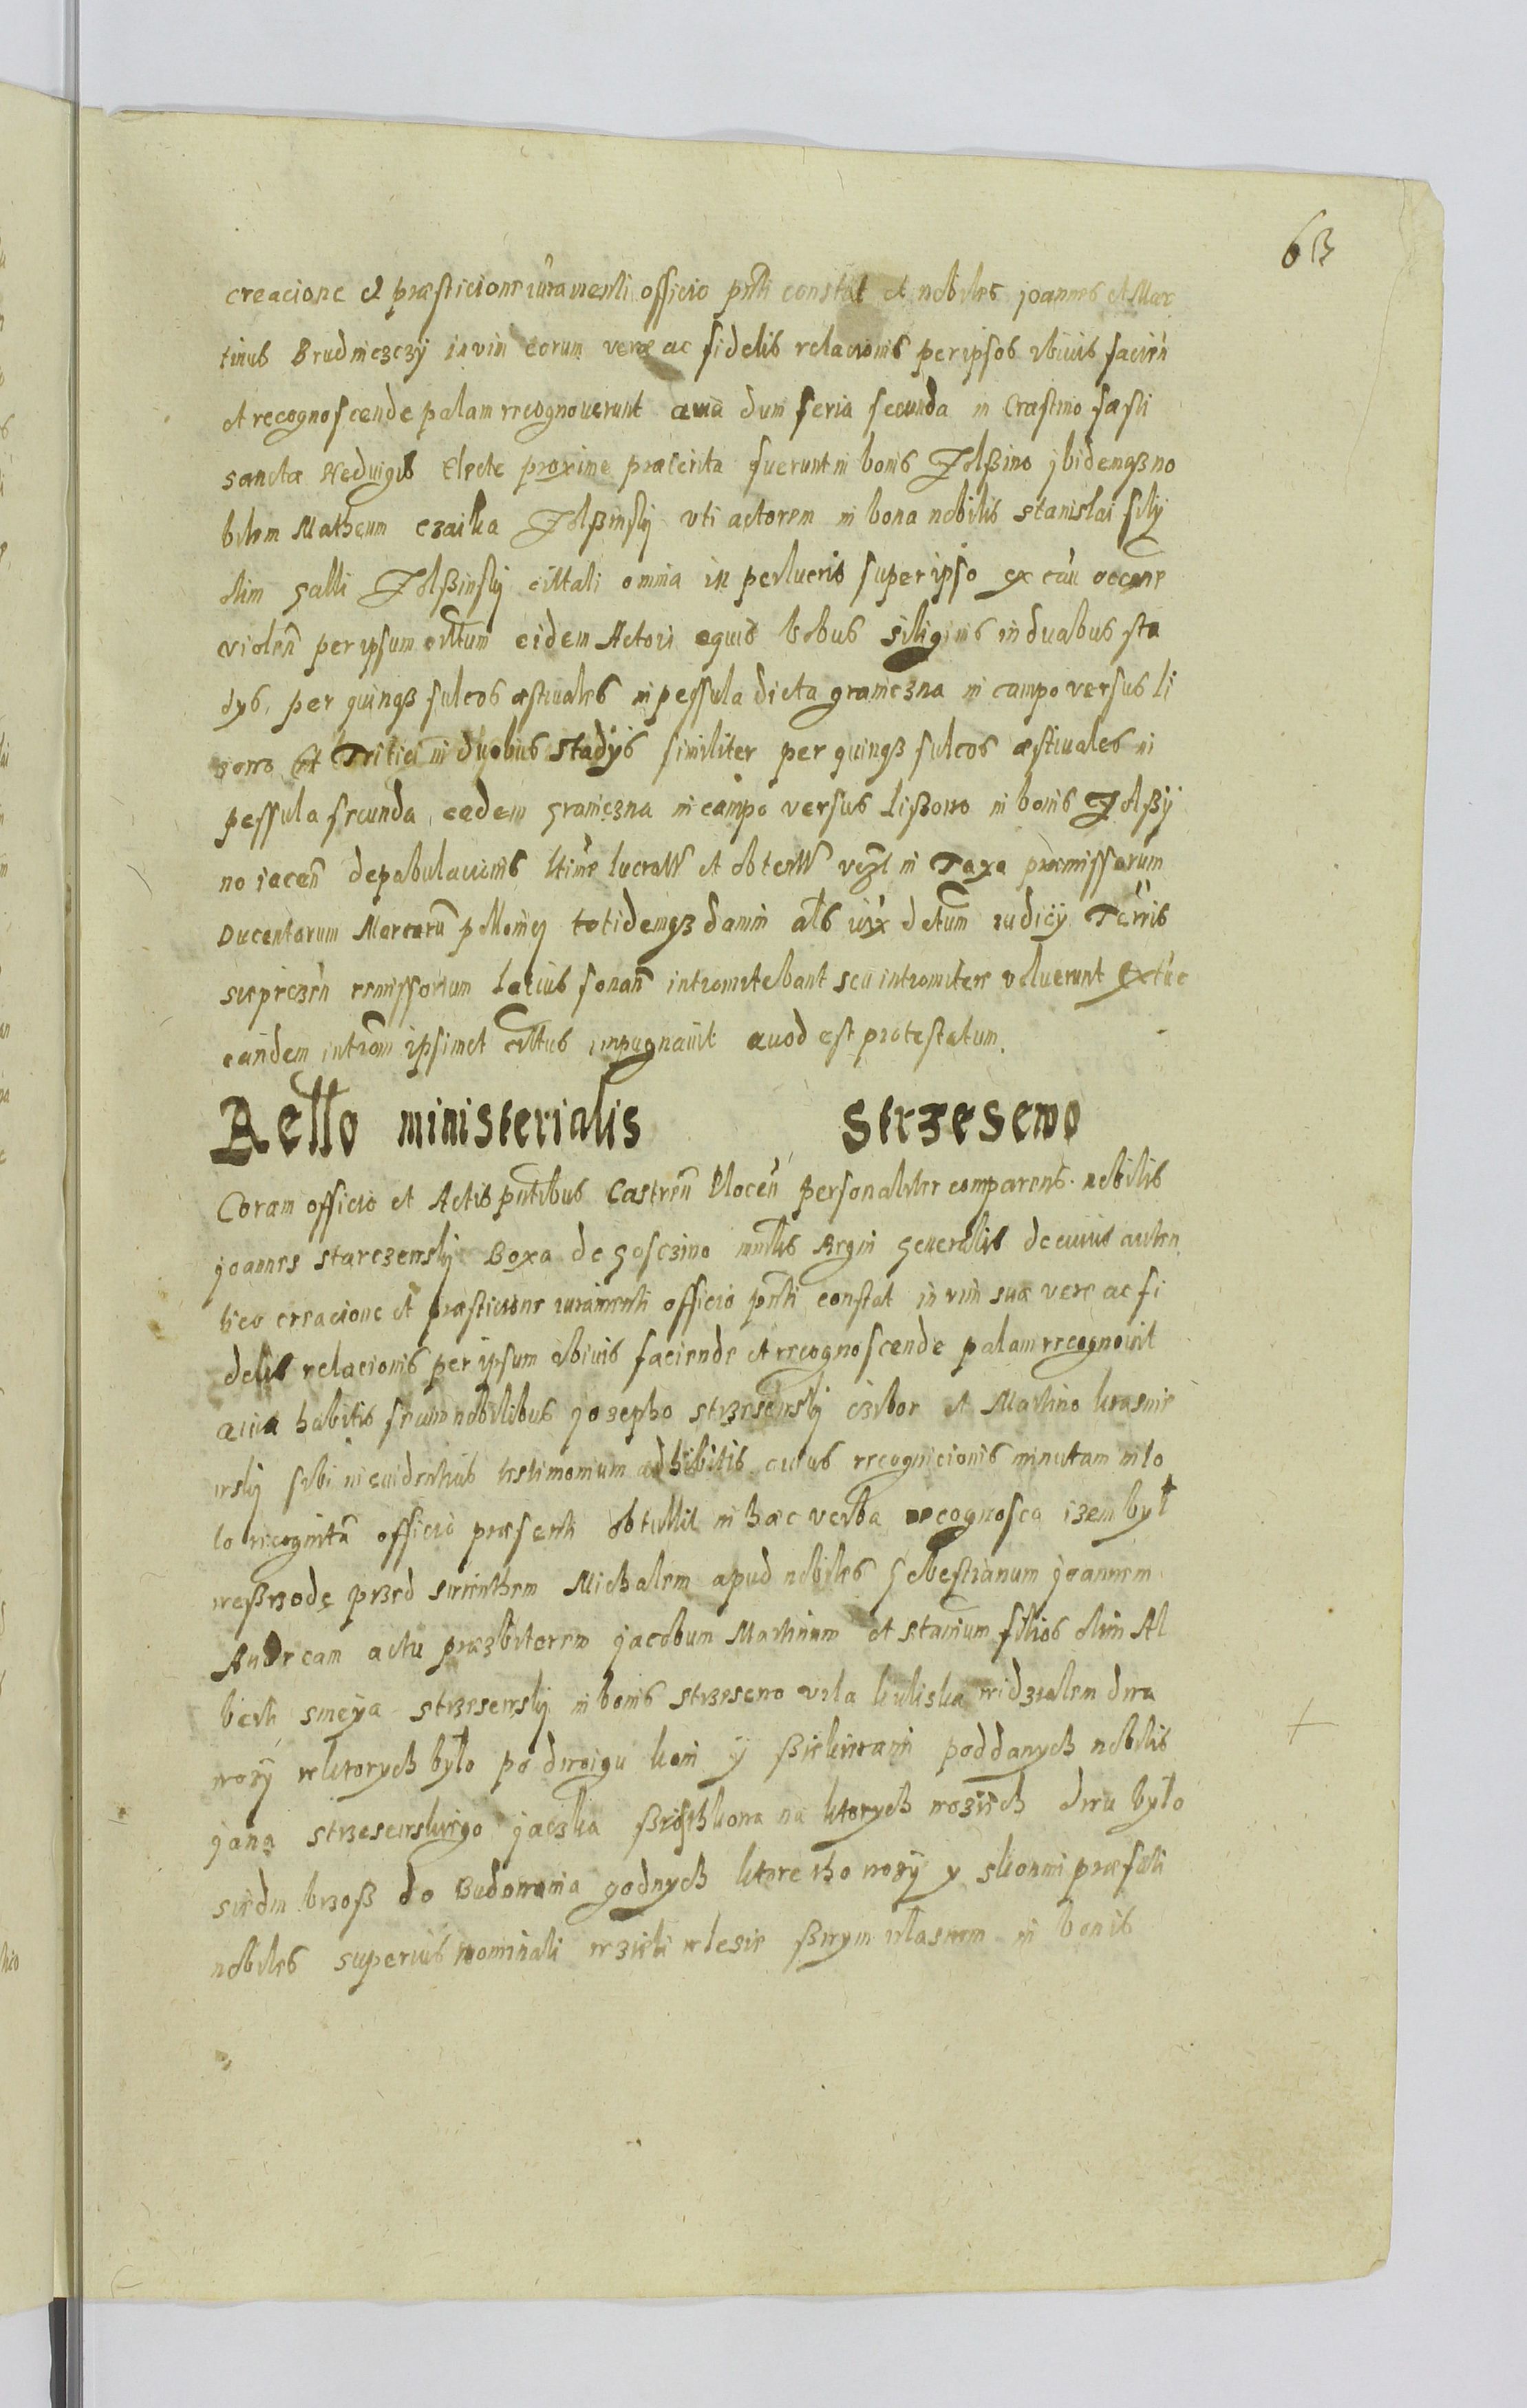 63
creacione et præsticione iuramenti officio pnti constat et nobiles joannes et Mar
tinus Brudniczczÿ in vim eorum veræ ac fidelis relacionis per ipsos ubiuis facien
et recognoscende palam recognouerunt quia dum feria secunda in Crastino fæsti
sanctæ Heduigis Electe proxime præterita fuerunt in bonis Jolßino jbidemqß no
bilem Matheum czaika Jolßinskÿ vti actorem in bona nobilis stanislai filÿ
olim galli Jolßinskÿ cittati omnia in perlucris super ipso ex cau occone
violen per ipsum cittum eidem Actori equis bobus siliginis in duabus sta
dys, per quinqß sulcos æstiuales in pessula dicta graniczna in campo versus li
ßowo et Tritici in duobus stadÿs similiter per quinqß sulcos æstiuales in
pessula secunda, eadem graniczna in campo versus lißowo in bonis Jolßÿ
no iacen depabulacionis ltime lucratt et obtentt in Taxa præmissorum
Ducentarum Marcaru pollonicj totidemqß damni als iux detum iudicÿ Terris
remissorium lacius sonan intromitebant seu intromitere voluerunt
eandem introm ipsimet cittus inpugnauit quod est protestatum.
Rello ministerialis strzesewo
Coram officio et Actis pntibus Castren Plocen personaliter comparens nobilis
joannes starczewskÿ Boxa de gosczino mnlis Regni generalis de cuius auten
tico creacione et præsticione iuramenti officio pnti constat in vim suæ vere ac fi
delis relacionis per ipsum ubiuis faciende et recognoscende palam recognouit
quia habitis secum nobilibus jozepho strzesewskÿ czibor et Martino krasnie
wskÿ sibi in euidentius testimonium adhibitis cuius recognicionis minutam in lo
co recognita officio præsenti obtullit in hæc verba recognosca izem był
weßrzode przed swienthem Michalem apud nobiles Sebestianum joannem
Andream actu præzbiterem jacobum Martinum et stanium filios olim Al
berti smeÿa strzesewskÿ in bonis strzeseno vila kuliska widzialem dwa
wozÿ wktorych było po dwoigu koni ÿ ßiekierami poddanych nobilis
jana strzesewskiego jaczka na ktorych wozіech dwu było
siedm brzoß do Budowania godnych ktore tho wozÿ y skonmi præfati
nobiles superius nominati wzieli wlesie ßwym wlasnem in bonis